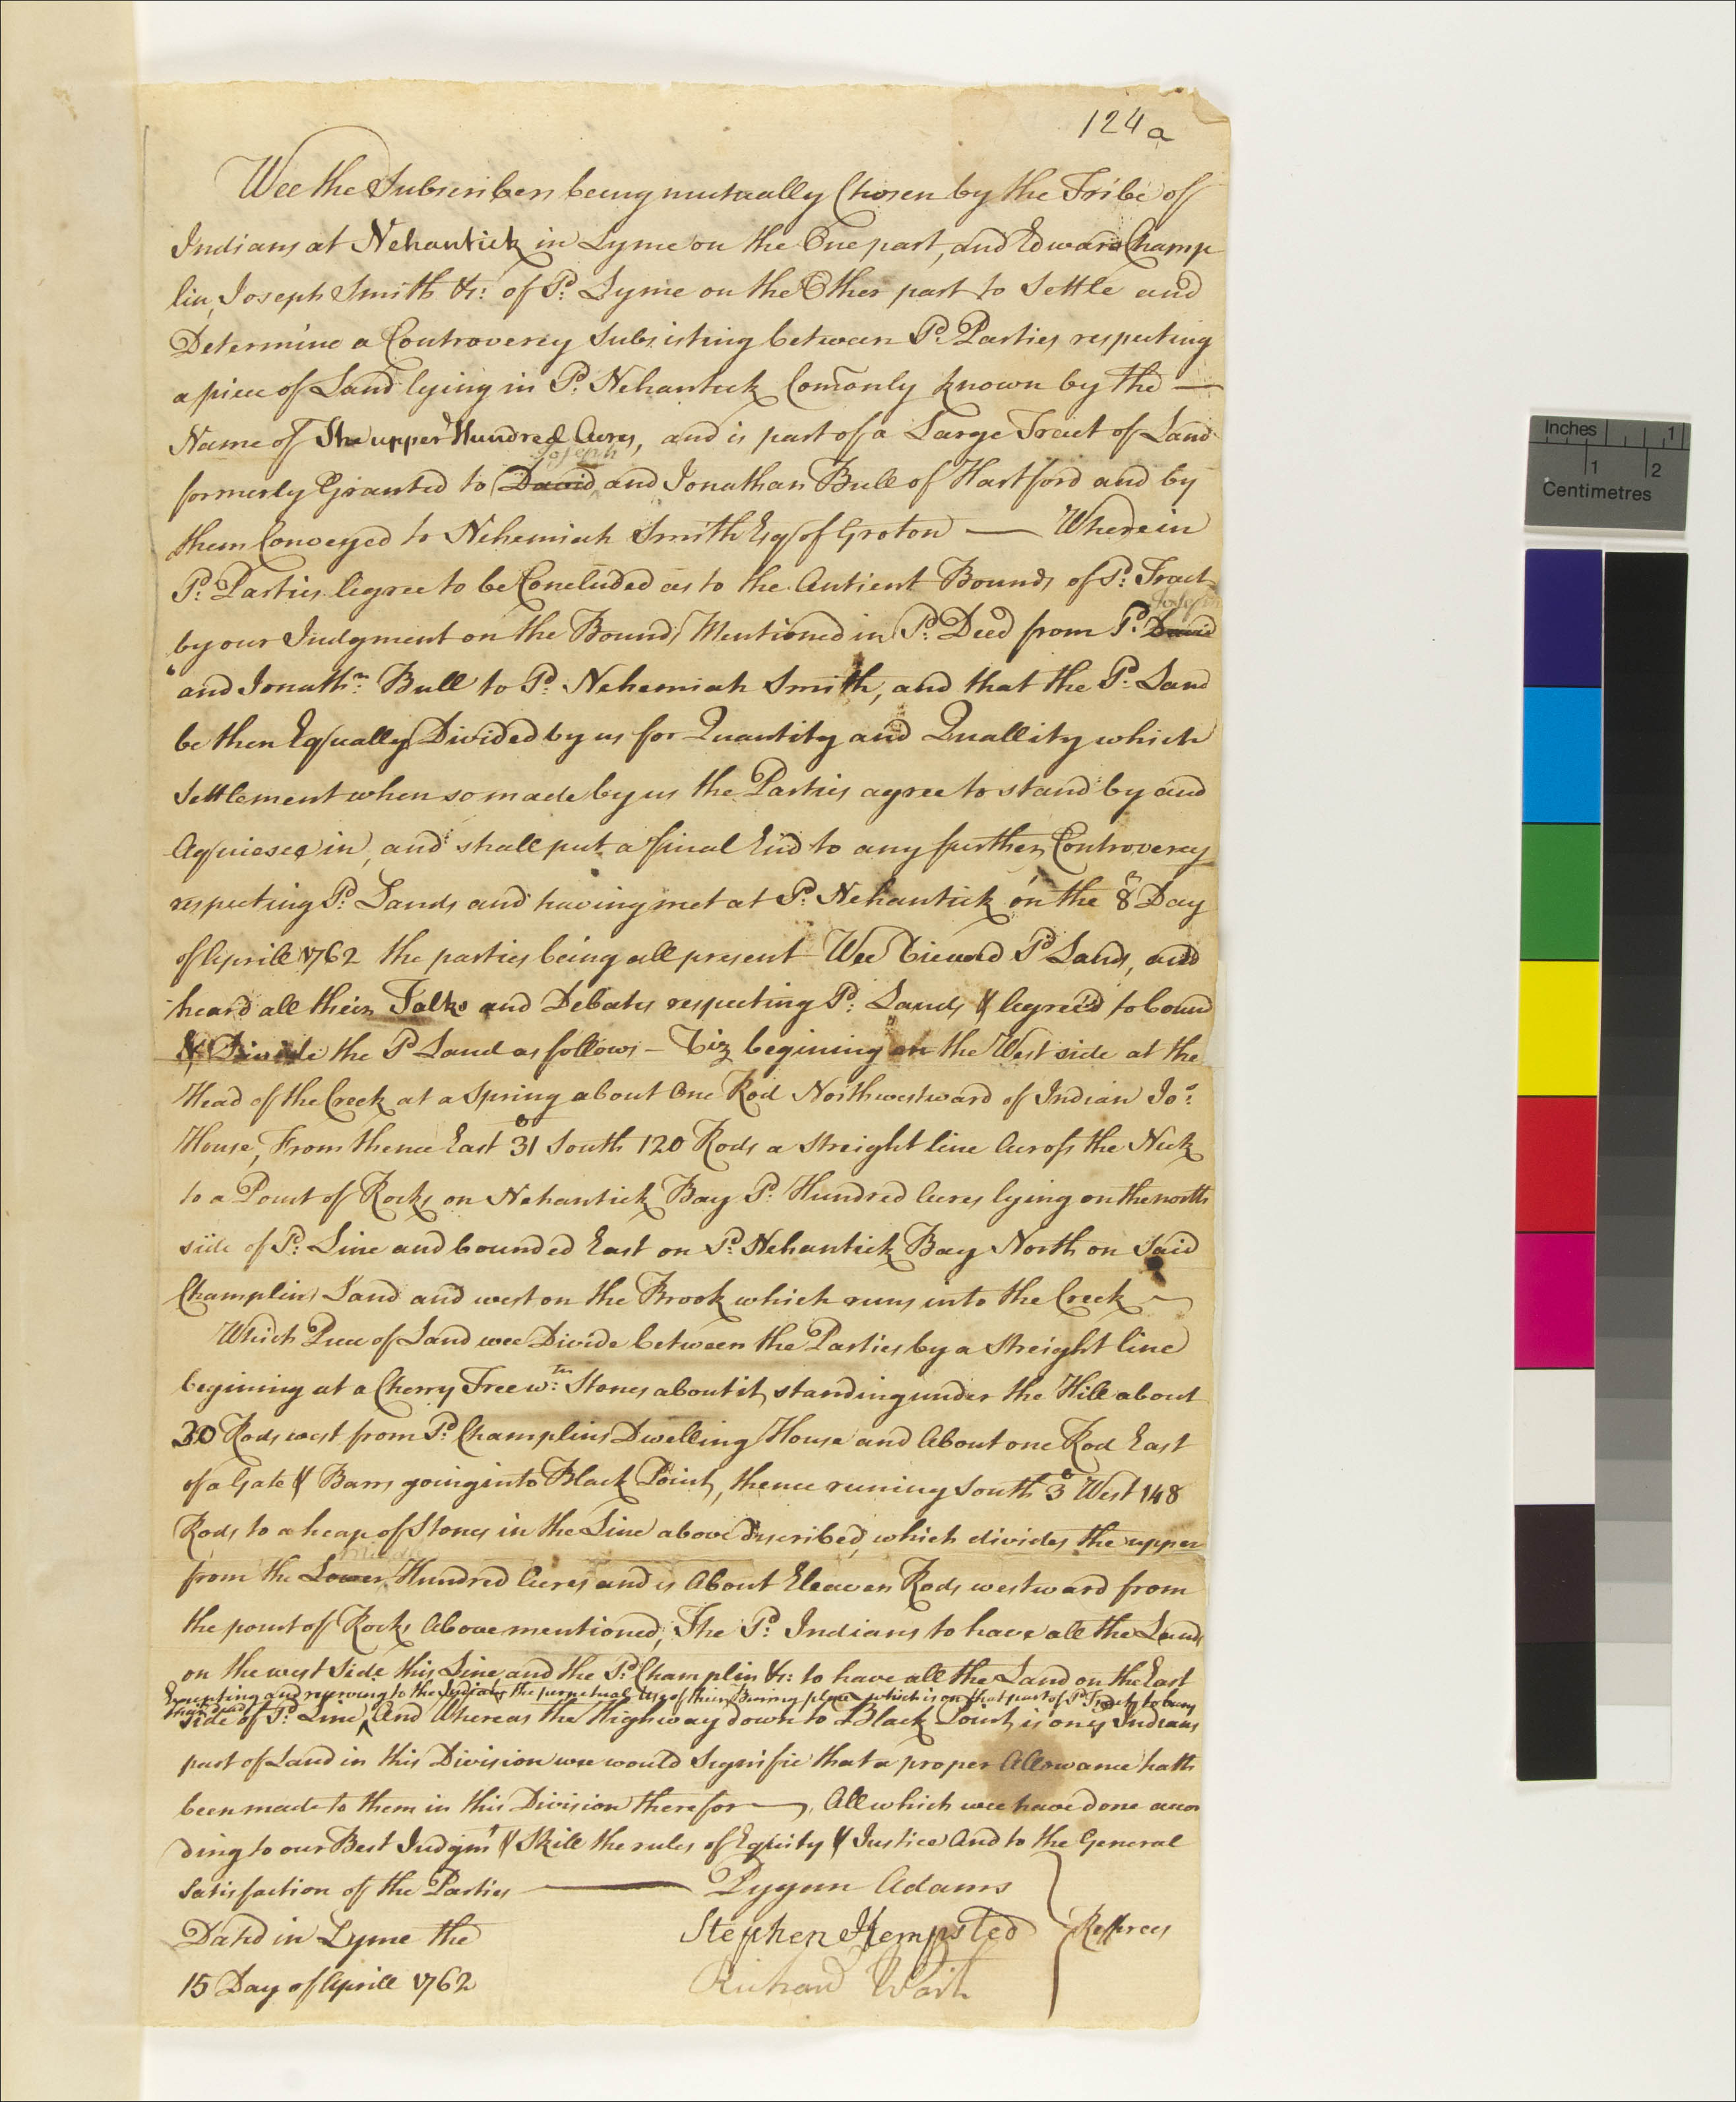 124a
Wee the Subscribers being mutually Chosen by the Tribe off
Indians at Nehantick in Lyme on the One part, and Edward Champ
lin, Joseph Smith &c: of Sd: Lyme on the Other part to Settle and
Determine a Controversy Subsisting between Sd. Parties respecting
a piece of Land lying in Sd. Nehantick Comonly known by the —
Name of The upper Hundred Acres, and is part of a Large Tract of Land
Joseph
formerly Granted to David and Jonathan Bull of Hartford and by
them Conveyed to Nehemiah Smith Esq of Groton — Wherein
Sd: Parties Agree to be Concluded as to the Antient Bounds of Sd: Tract
Joseph
by our Judgment on the Bounds Mentioned in Sd: Deed from Sd: David
and Jonathn: Bull to Sd. Nehemiah Smith, and that the Sd. Land
be then Equally Divided by us for Quantity and Quallity which
Settlement when so made by us the Parties agree to stand by and
Aquiesce in, and shall put a final End to any further Controversy
respecting Sd: Lands and having met at Sd. Nehantick on the 8 Day
of Aprill 1762 the parties being all present Wee Viewed Sd Lands, and
heard all their Talks and Debates respecting Sd: Lands & Agree'd to bound
& Divide the Sd Land as follows – Viz begining on the West side at the
Head of the Creek at a Spring about One Rod Northwestward of Indian Jos:
House, From thence East 31° South 120 Rods a streight line Across the Neck
to a Point of Rocks on Nehantick Bay Sd: Hundred Acres lying on the north
side of Sd: Line and bounded East on Sd: Nehantick Bay North on Said
Champlins Land and west on the Brook which runs into the Creek —
Which Piece of Land wee Divide between the Parties by a streight line
begining at a Cherry Tree wth: Stones about it, standing under the Hill about
30 Rods west from Sd: Champlins Dwelling House and About one Rod East
of a Gate & Barrs going into Black Point, thence runing South 3° West 148
Rods to a heap of Stones in the Line above Discribed, which divides the upper
middle
from the Lower Hundred Acres and is About Eleaven Rods westward from
the point of Rocks Above mentioned, The Sd: Indians to have all the Land
on the west Side this Line and the Sd: Champlin &c: to have all the Land on the East
Excepting and reserving to the Indians the perpetual Use of their Burring place which is on that part of Sd Tract, to bury
their dead
side of Sd: Line, And Whereas the Highway down to Black Point, is on ye Indians
part of Land in this Division wee would Signifie that a proper Allowance hath
been made to them in this Division therefor —, All which wee have done accor
ding to our Best Judgmt & Skill the rules of Equity & Justice And to the General
Satisfaction of the Parties — Pygan Adams
Dated in Lyme the Stephen Hempsted Refferees
15 Day of Aprill 1762 Richard Wait
Inches 1
1 2
Centimetres